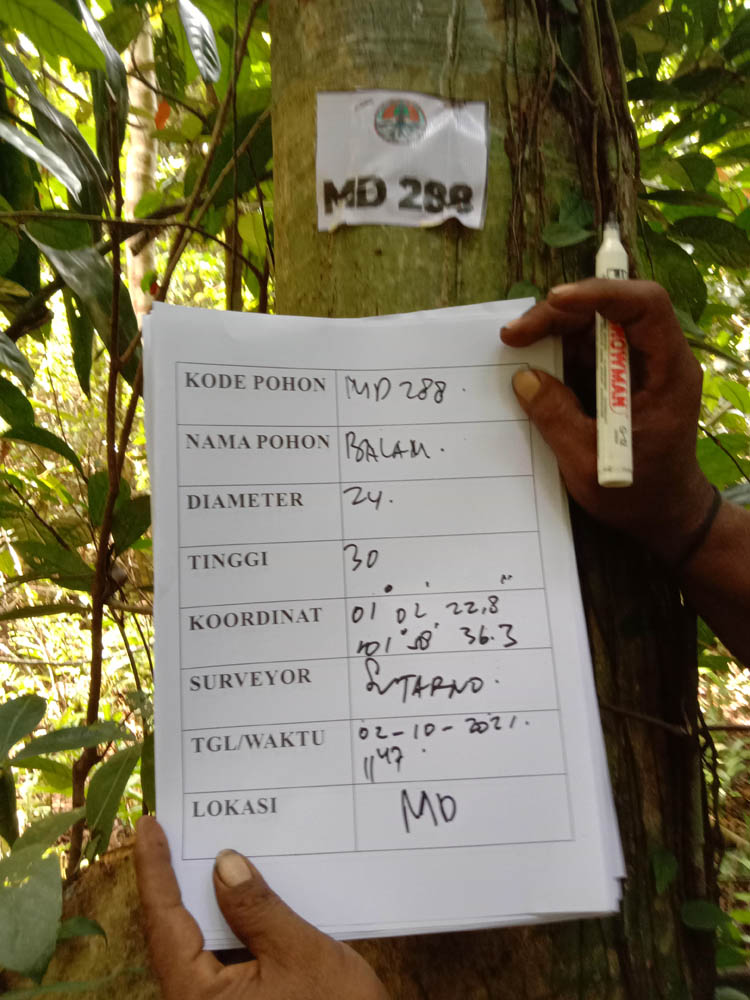 MD 288
SNOWMAN
KODE POHON MD 288.
NAMA POHON BALAM.
DIAMETER 24.
TINGGI 30
KOORDINAT 01° 02' 22,8"
101° 58' 36.3
SURVEYOR SUTARNO.
TGL/WAKTU 02-10-2021.
11 47
LOKASI MD